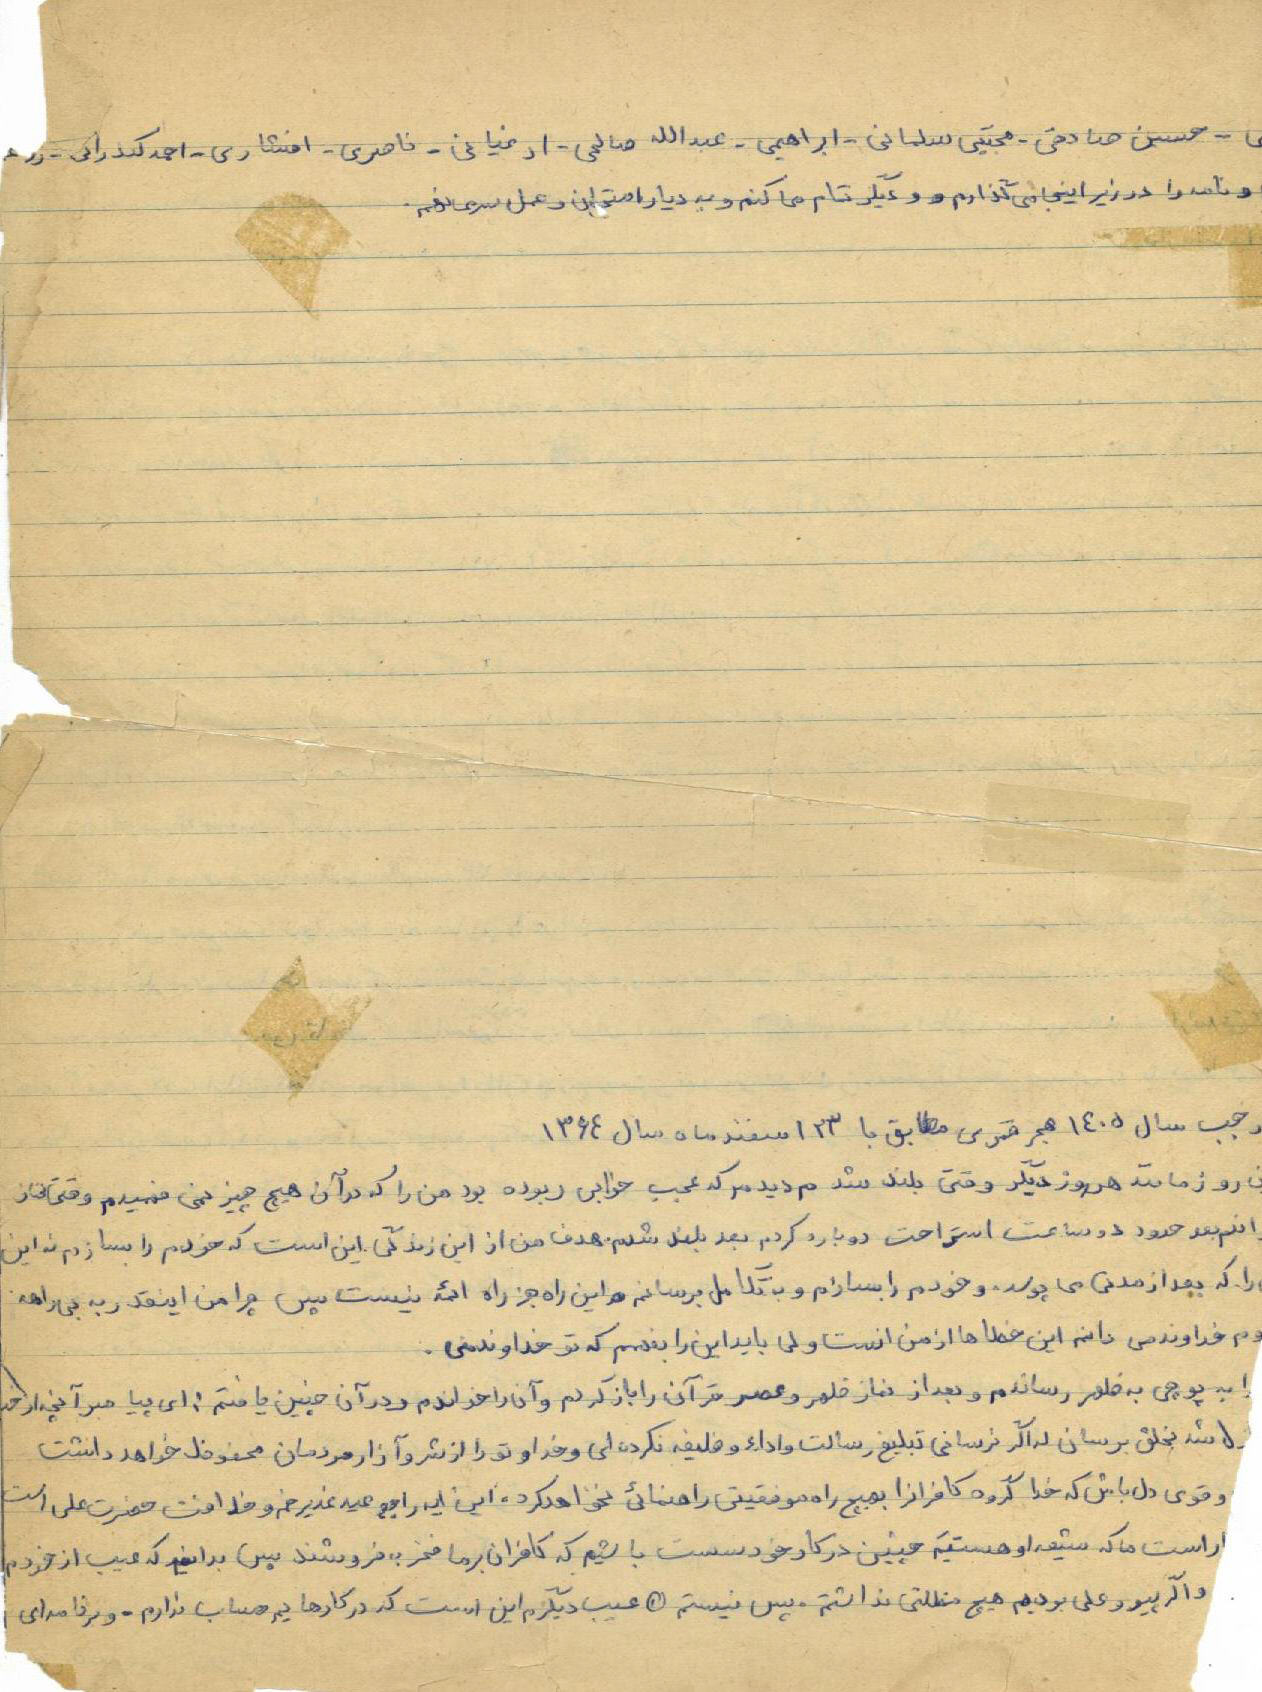 ی - حسین صادقی - مجتبی سلمانی - ابراهیمی - عبدالله صالحی - ارغیانی - ناصری - افشاری - احمد کندرانی -
و نامه را در زیر اینجا می گذارم و و دیگر تمام می کنم و به دیار امتحان و عمل
رجب سال ۱۴۰۵ هجر قمری مطابق با ۲۳ اسفند ماه سال ۱۳۶۴
روز مانند هر روز دیگر وقتی بلند شدم دیدم که عجب خوابی ربوده بود من را که در آن هیچ چیز نمی فهمیدم وقتی نماز
خواندم بعد حدود دو ساعت استراحت دوباره کردم بعد بلند شدم. هدف من از این زندگی این است که خودم را بسازم نه این
را که بعد از مدتی می پوسد. و خودم را بسازم و به تکامل برسانم و این راه جز راه ائمه نیست پس چرا من اینقدر به بی راهه
روم خداوند می دانم این خطاها از من است ولی باید این را بفهمم که تو خداوند منی .
را به پوچی به ظهر رساندم و بعد از نماز ظهر و عصر قرآن را باز کردم و آن را خواندم و در آن چنین یافتم : ای پیامبر آنچه از خدا
شد بخلق برسان که اگر نرسانی تبلیغ رسالت و اداء وظیفه نکرده ای و خداوند تو را از شر و آزار مردمان محفوظ خواهد داشت
و قوی دل باش که خدا گروه کافران را بهیچ راه موفقیتی راهنمائی نخواهد کرد. این آیه راجع عید غدیر خم و خلافت حضرت علی است
است ما که شیعه او هستیم چنین در کار خود سست باشیم که کافران بر ما فخر بفروشند پس بدانیم که عیب از خودم
و اگر پیرو علی بودیم هیچ مشکلی نداشتم. پس نیستم عیب دیگرم این است که در کارهایم حساب ندارم - و برنامه ای